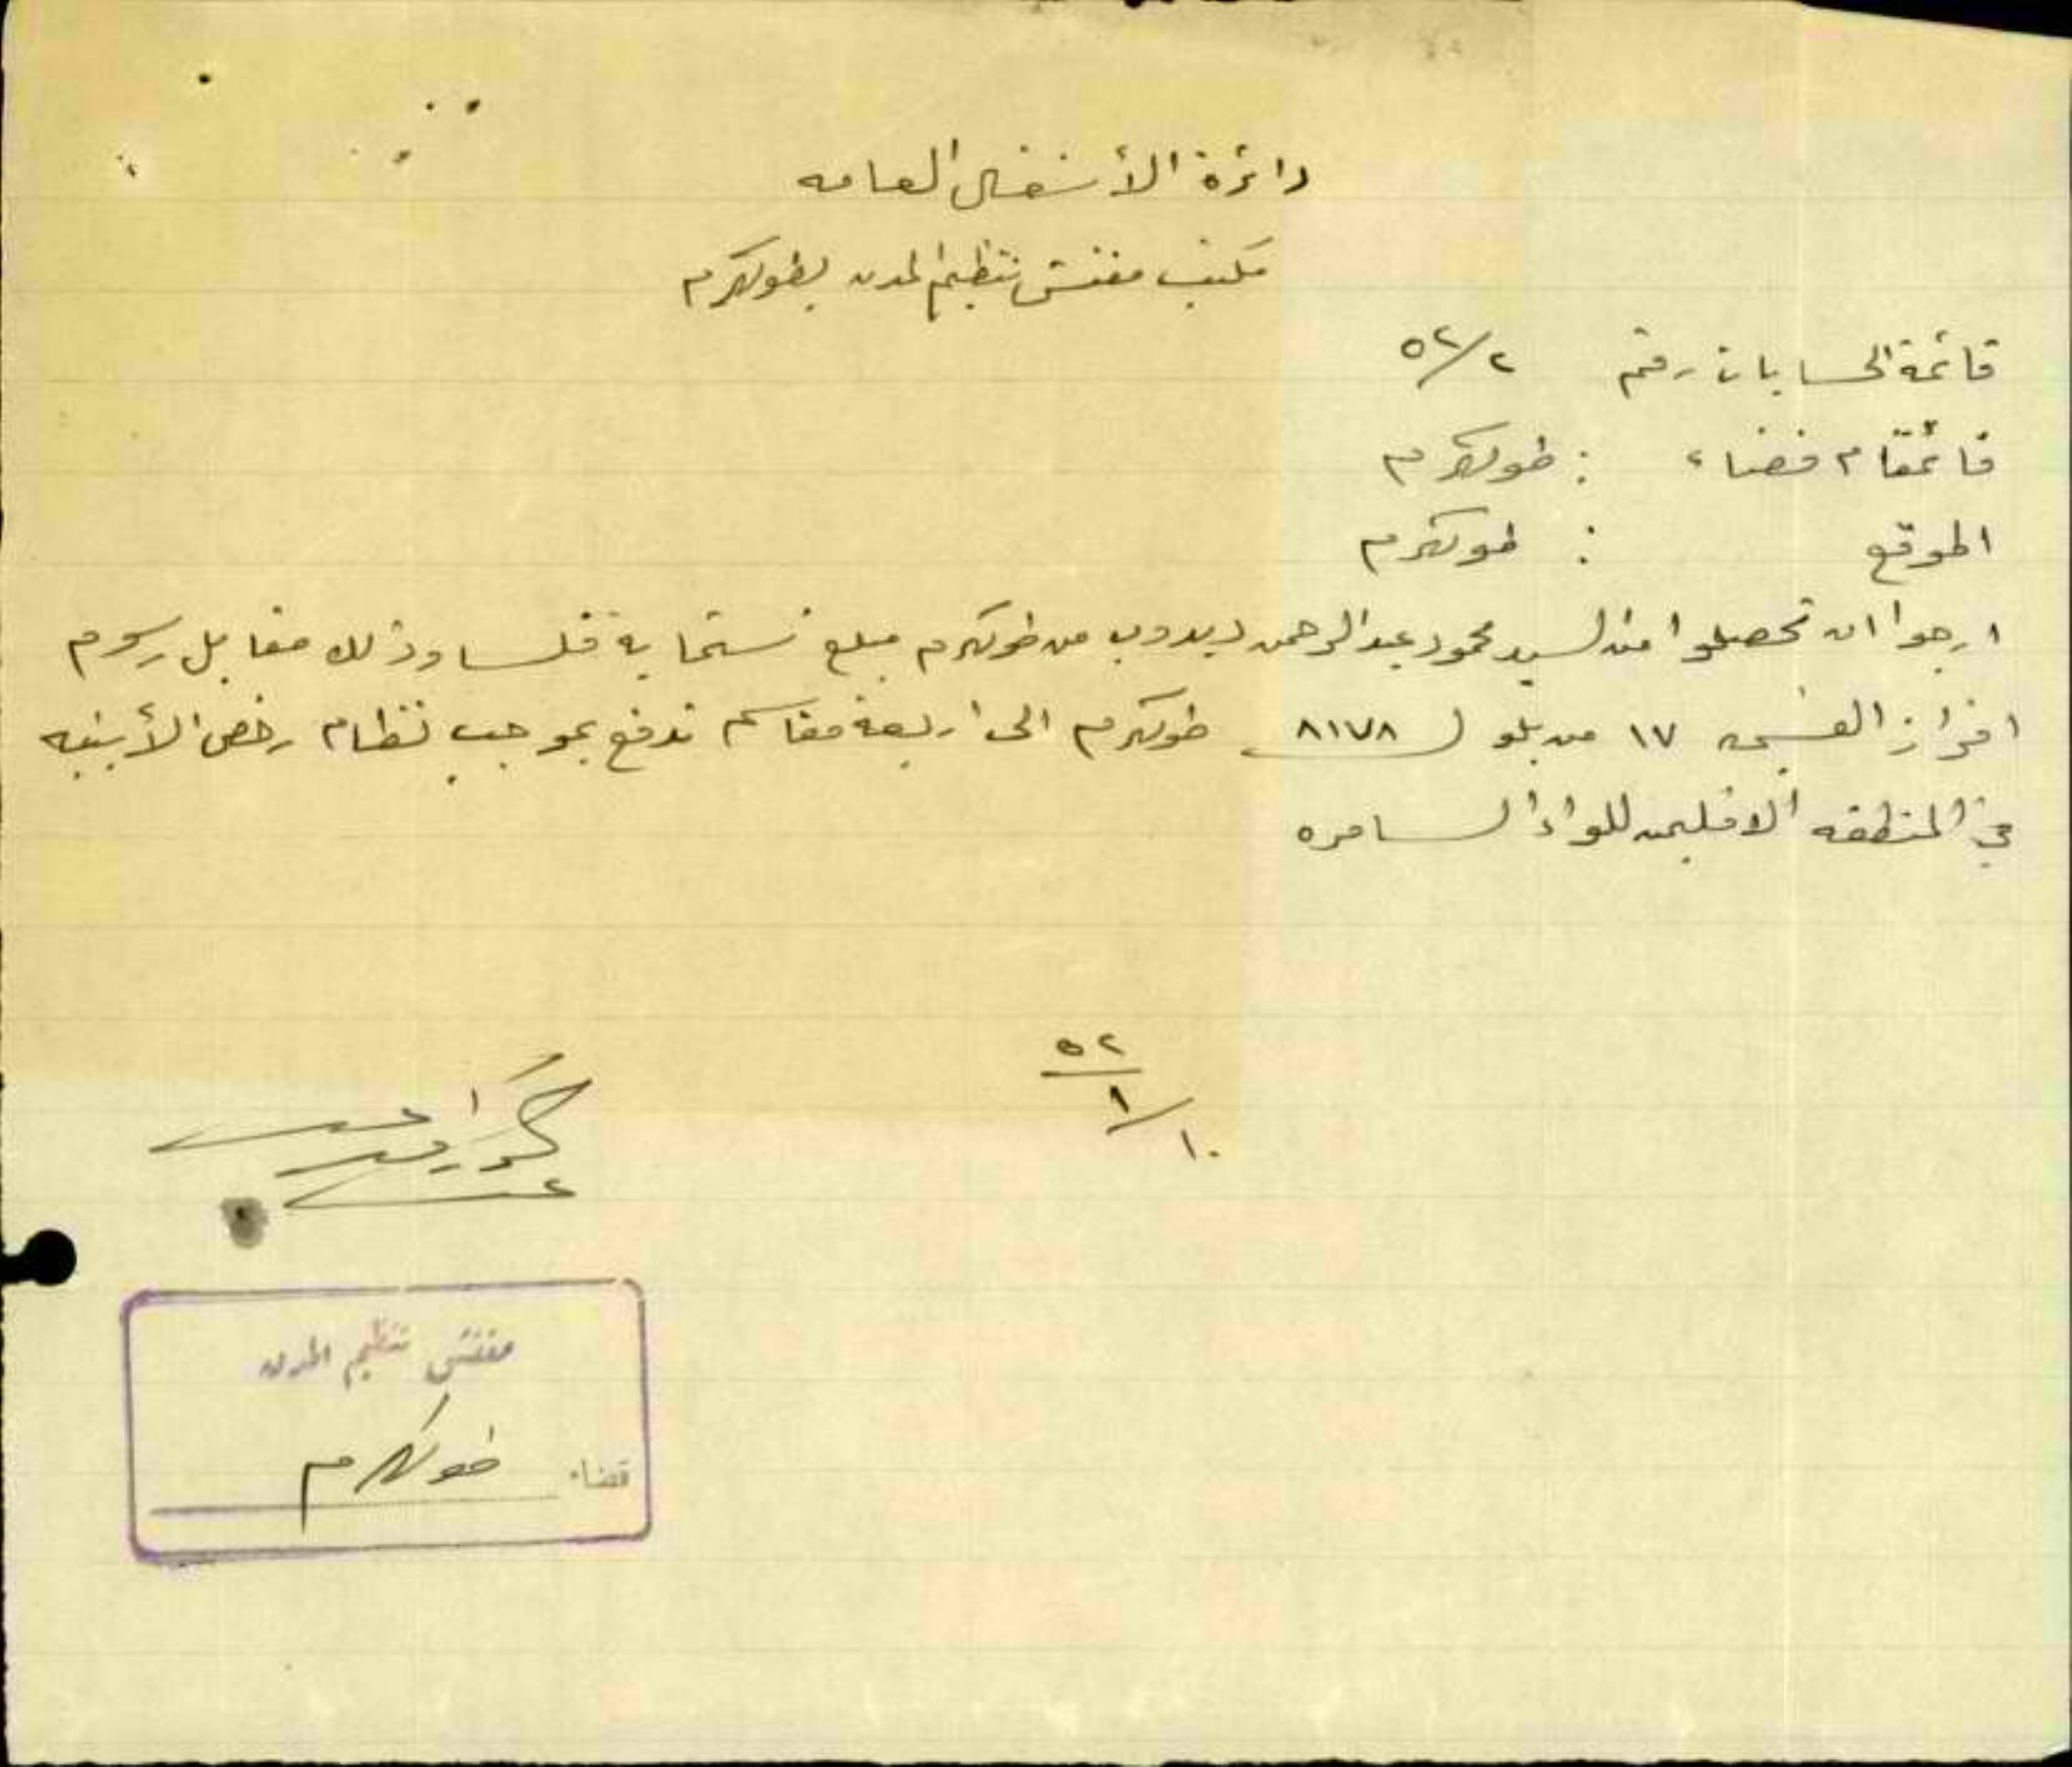 دائرة الأشغال العامه
مكتب مفتش تنظيم المدن بطولكرم
قائمة الحسابات رقم ٥٢/٢
قائمقام قضاء : طولكرم
الموقع : طولكرم
ارجوا ان تحصلوا من السيد محمود عبد الرحمن ديدوب من طولكرم مبلغ ستماية فلسا وذلك مقابل رسوم
افراز القسيمه ١٧ من بلوك ٨١٧٨ طولكرم الى اربعة مقاسم تدفع بموجب نظام رخص الأبنيه
في المنطقه الاقليميه للواء السامره
٥٢
١٠/١
مفتش تنظيم المدن
قضاء طولكرم